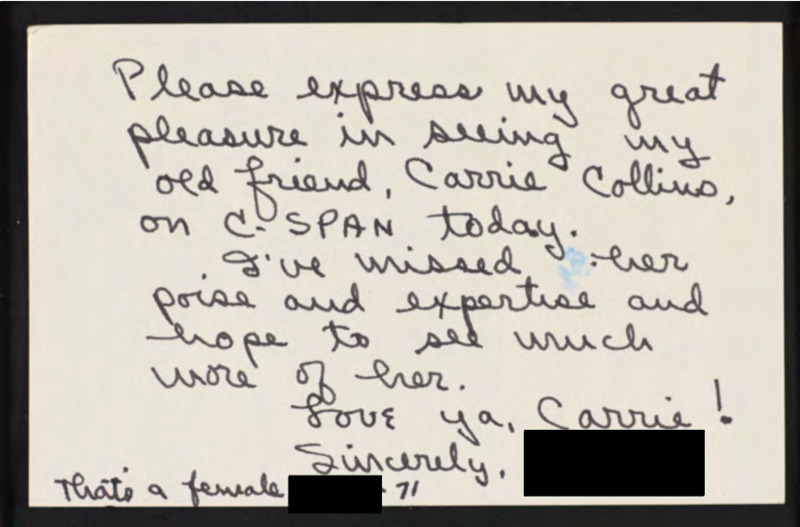 Please express my great
pleasure in seeing my
old friend, Carrie Collins,
on C-SPAN today.
I've missed her
poise and expertise and
hope to see much
more of her.
Love ya, Carrie!
Sincerely,
That's a female 71